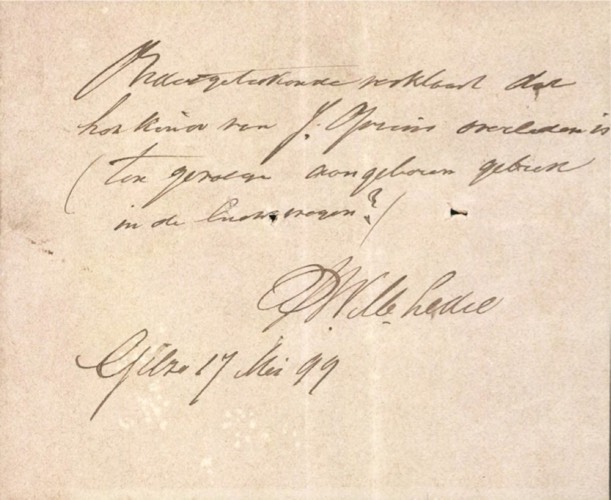 Ondergetekende verklaart dat
het kind van J. overleden is
(ten gevolge aangeboren gebrek
in de ?)
Gilze 17 Mei 99